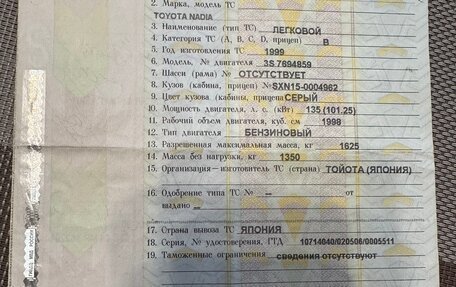 2. Марка, модель ТС
TOYOTA NADIA
3. Наименование (тип ТС) ЛЕГКОВОЙ
4. Категория ТС (A, B, C, D, прицеп) B
5. Год изготовления ТС 1999
6. Модель, № двигателя 3S 7694859
7. Шасси (рама) № ОТСУТСТВУЕТ
8. Кузов (кабина, прицеп) № SXN15-0004962
9. Цвет кузова (кабины, прицепа) СЕРЫЙ
10. Мощность двигателя, л. с. (кВт) 135 (101.25)
11. Рабочий объем двигателя, куб. см 1998
12. Тип двигателя БЕНЗИНОВЫЙ
13. Разрешенная максимальная масса, кг 1625
14. Масса без нагрузки, кг 1350
15. Организация—изготовитель ТС (страна) ТОЙОТА (ЯПОНИЯ)
16. Одобрение типа ТС № -- от
выдано --
17. Страна вывоза ТС ЯПОНИЯ
18. Серия, № удостоверения, ГТД 10714040/020506/0005511
19. Таможенные ограничения сведения отсутствуют